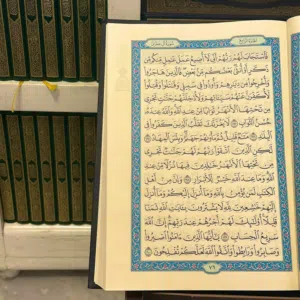 الجزء الرابع سورة آل عمران
فَٱسْتَجَابَ لَهُمْ رَبُّهُمْ أَنِّى لَآ أُضِيعُ عَمَلَ عَٰمِلٍ مِّنكُم مِّن
ذَكَرٍ أَوْ أُنثَىٰ بَعْضُكُم مِّنۢ بَعْضٍ فَٱلَّذِينَ هَاجَرُوا۟
وَأُخْرِجُوا۟ مِن دِيَٰرِهِمْ وَأُوذُوا۟ فِى سَبِيلِى وَقَٰتَلُوا۟ وَقُتِلُوا۟
لَأُكَفِّرَنَّ عَنْهُمْ سَيِّـَٔاتِهِمْ وَلَأُدْخِلَنَّهُمْ جَنَّٰتٍ تَجْرِى
مِن تَحْتِهَا ٱلْأَنْهَٰرُ ثَوَابًا مِّنْ عِندِ ٱللَّهِ وَٱللَّهُ عِندَهُۥ
حُسْنُ ٱلثَّوَابِ ١٩٥ لَا يَغُرَّنَّكَ تَقَلُّبُ ٱلَّذِينَ كَفَرُوا۟ فِى
ٱلْبِلَٰدِ ١٩٦ مَتَٰعٌ قَلِيلٌ ثُمَّ مَأْوَىٰهُمْ جَهَنَّمُ وَبِئْسَ ٱلْمِهَادُ ١٩٧
لَٰكِنِ ٱلَّذِينَ ٱتَّقَوْا۟ رَبَّهُمْ لَهُمْ جَنَّٰتٌ تَجْرِى
مِن تَحْتِهَا ٱلْأَنْهَٰرُ خَٰلِدِينَ فِيهَا نُزُلًا مِّنْ عِندِ
ٱللَّهِ وَمَا عِندَ ٱللَّهِ خَيْرٌ لِّلْأَبْرَارِ ١٩٨ وَإِنَّ مِنْ أَهْلِ
ٱلْكِتَٰبِ لَمَن يُؤْمِنُ بِٱللَّهِ وَمَآ أُنزِلَ إِلَيْكُمْ وَمَآ أُنزِلَ
إِلَيْهِمْ خَٰشِعِينَ لِلَّهِ لَا يَشْتَرُونَ بِـَٔايَٰتِ ٱللَّهِ ثَمَنًا
قَلِيلًا أُو۟لَٰٓئِكَ لَهُمْ أَجْرُهُمْ عِندَ رَبِّهِمْ إِنَّ ٱللَّهَ
سَرِيعُ ٱلْحِسَابِ ١٩٩ يَٰٓأَيُّهَا ٱلَّذِينَ ءَامَنُوا۟ ٱصْبِرُوا۟
وَصَابِرُوا۟ وَرَابِطُوا۟ وَٱتَّقُوا۟ ٱللَّهَ لَعَلَّكُمْ تُفْلِحُونَ ٢٠٠
٧٦